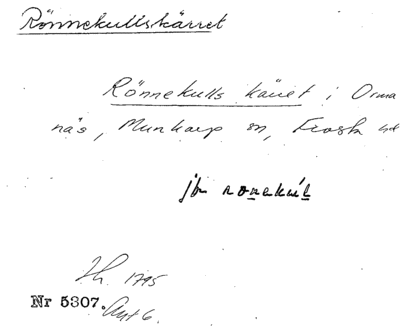 Rönnekullskärret
Rönnekulls käret i Orma
näs, Munkarp sn, Frosta hd
jfr
Sk. 1795
Nr 5307. Akt 6.